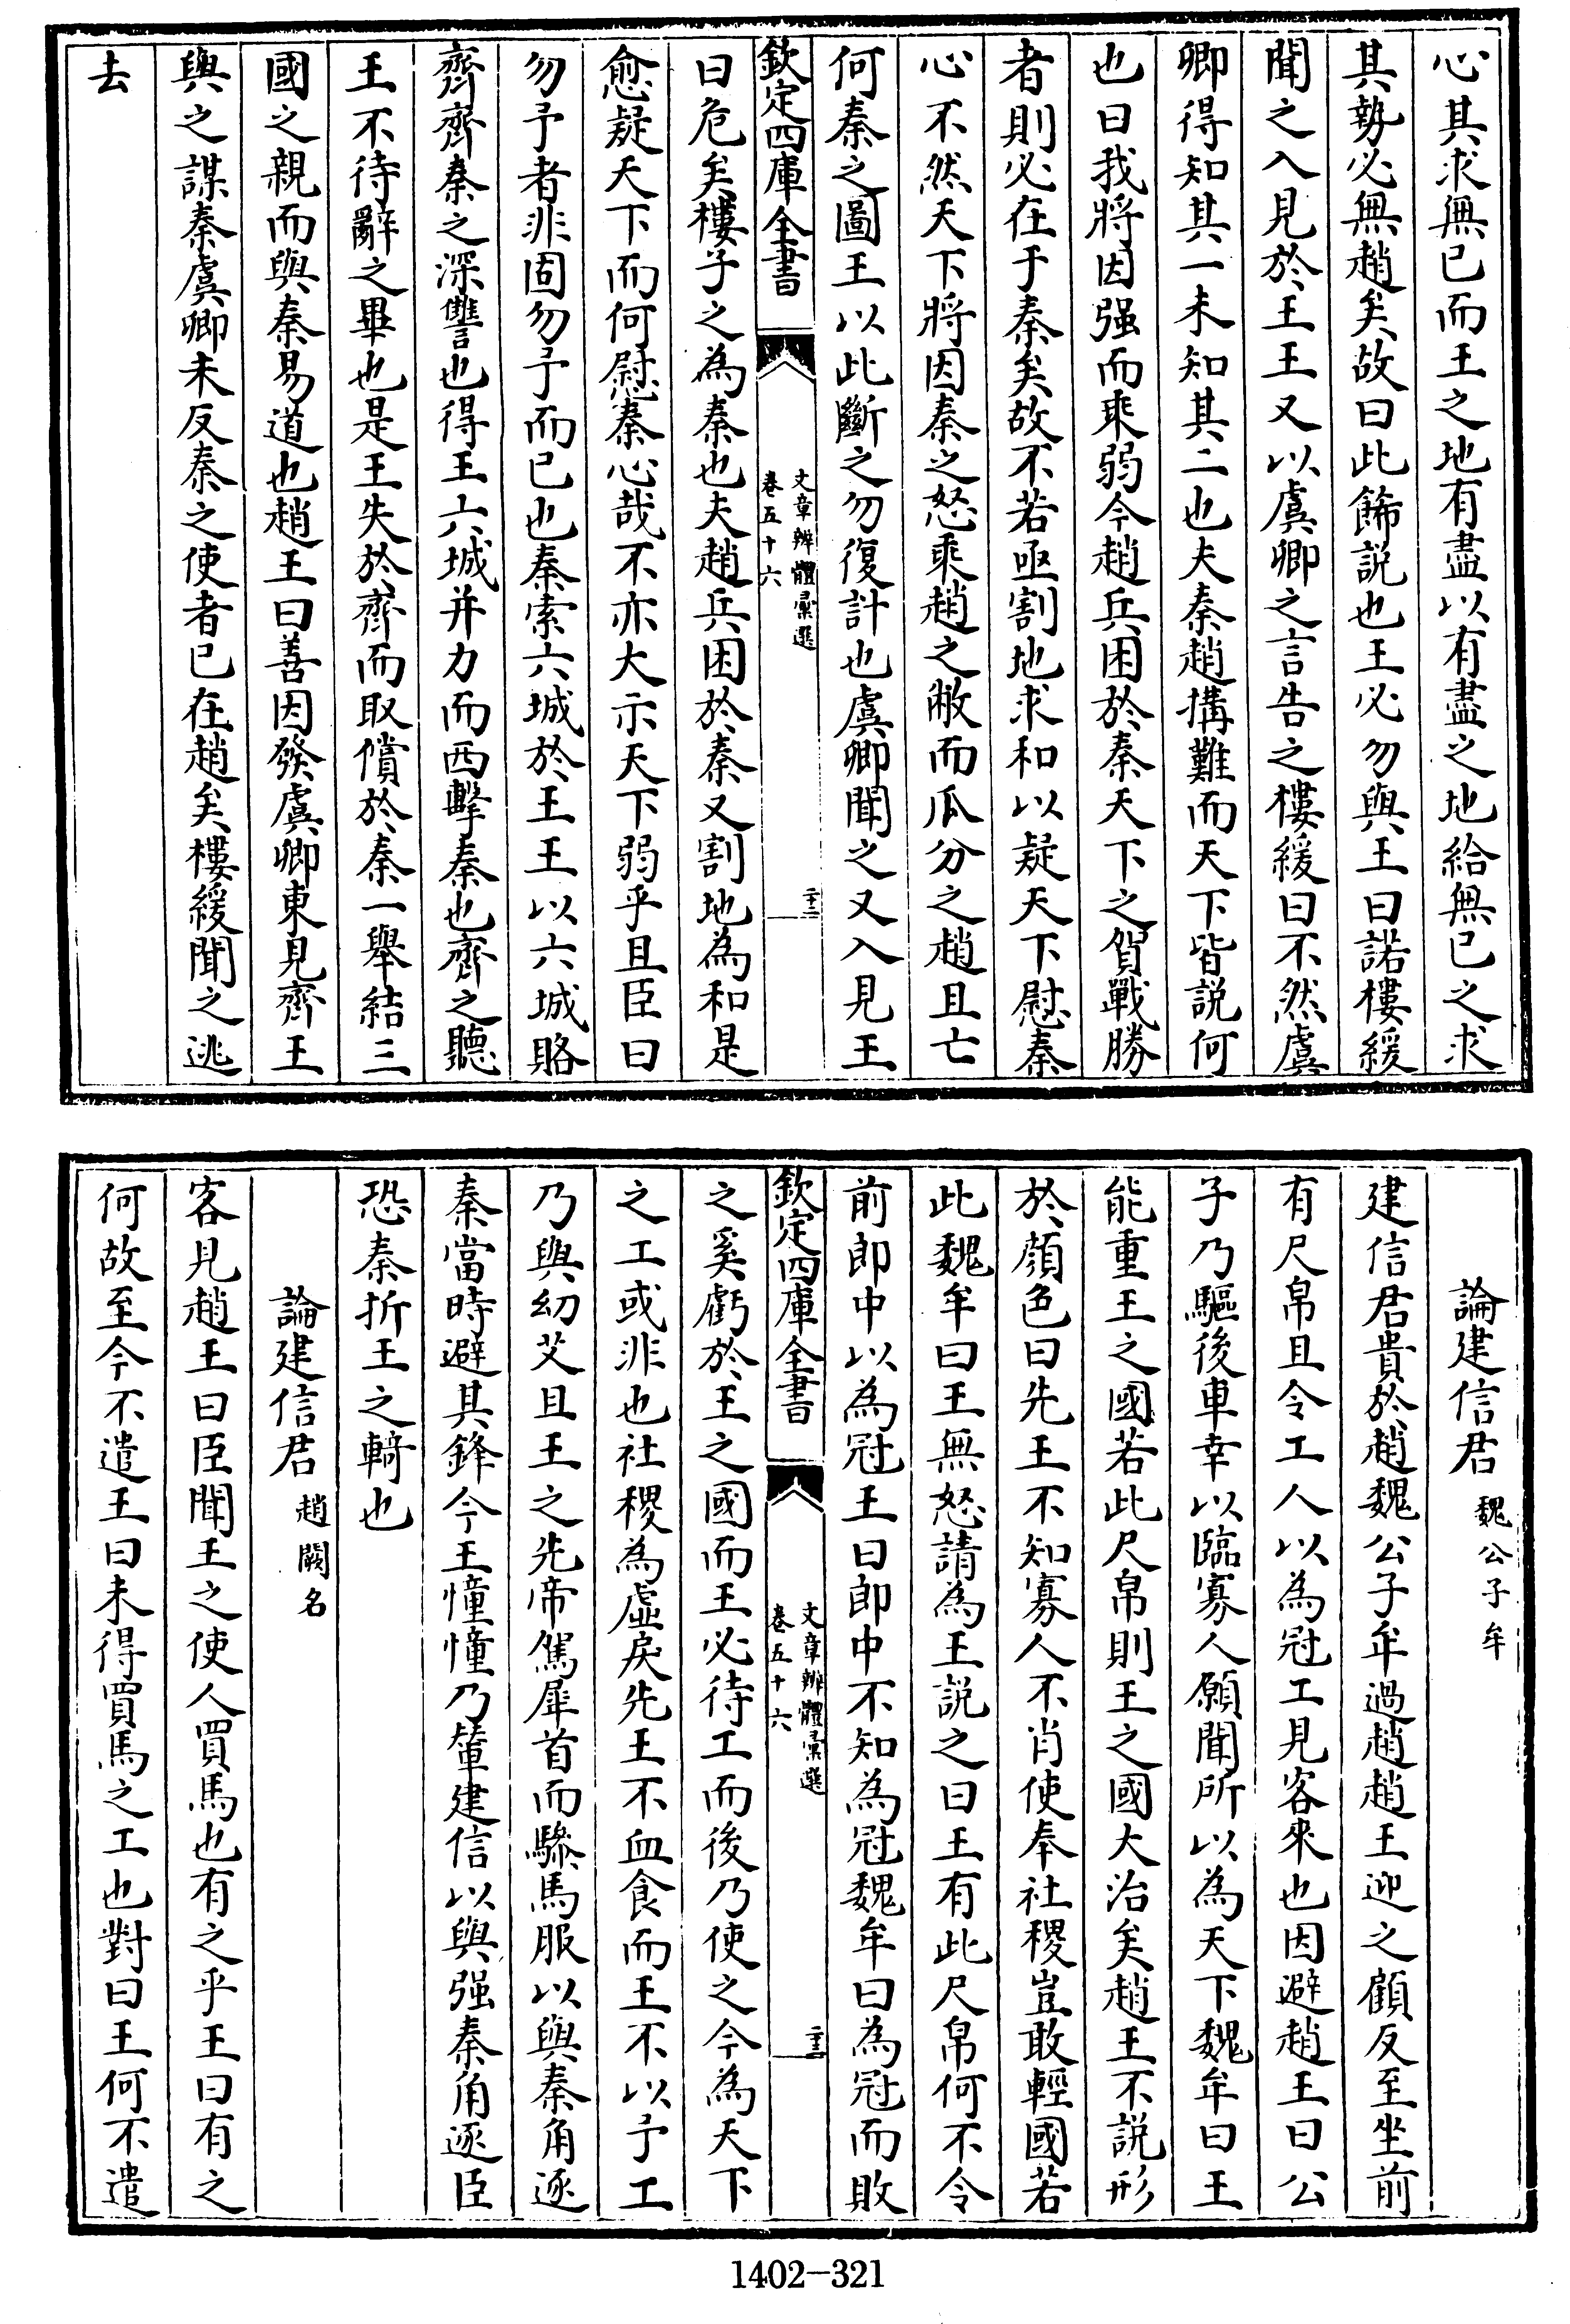 心其求無已而王之地有盡以有盡之地給無已之求
其勢必無趙矣故曰此飾説也王必勿與王曰諾樓緩
聞之入見於王王又以虞卿之言告之樓緩曰不然虞
卿得知其一未知其二也夫秦趙搆難而天下皆説何
也曰我將因强而乘弱今趙兵困於秦天下之賀戰勝
者則必在于秦矣故不若亟割地求和以疑天下慰秦
心不然天下將因秦之怒乘趙之敝而瓜分之趙且亡
何秦之圖王以此斷之勿復計也虞卿聞之又入見王
欽定四庫全書
文章辨體彙選
卷五十六
二十二
曰危矣樓子之為秦也夫趙兵困於秦又割地為和是
愈疑天下而何慰秦心哉不亦大示天下弱乎且臣曰
勿予者非固勿予而已也秦索六城於王王以六城賂
齊齊秦之深讐也得王六城并力而西擊秦也齊之聽
王不待辭之畢也是王失於齊而取償於秦一舉結三
國之親而與秦易道也趙王曰善因發虞卿東見齊王
與之謀秦虞卿未反秦之使者已在趙矣樓緩聞之逃
去
論建信君 魏公子牟
建信君貴於趙魏公子牟過趙趙王迎之顧反至坐前
有尺帛且令工人以為冠工見客來也因避趙王曰公
子乃驅後車幸以臨寡人願聞所以為天下魏牟曰王
能重王之國若此尺帛則王之國大治矣趙王不説形
於顔色曰先王不知寡人不肖使奉社稷豈敢輕國若
此魏牟曰王無怒請為王説之曰王有此尺帛何不令
前郎中以為冠王曰郎中不知為冠魏牟曰為冠而敗
欽定四庫全書
文章辨體彙選
卷五十六
二十三
之奚虧於王之國而王必待工而後乃使之今為天下
之工或非也社稷為虛戾先王不血食而王不以予工
乃與幼艾且王之先帝駕犀首而驂馬服以與秦角逐
秦當時避其鋒今王憧憧乃輦建信以與强秦角逐臣
恐秦折王之輢也
論建信君 趙闕名
客見趙王曰臣聞王之使人買馬也有之乎王曰有之
何故至今不遣王曰未得買馬之工也對曰王何不遣
1402-321